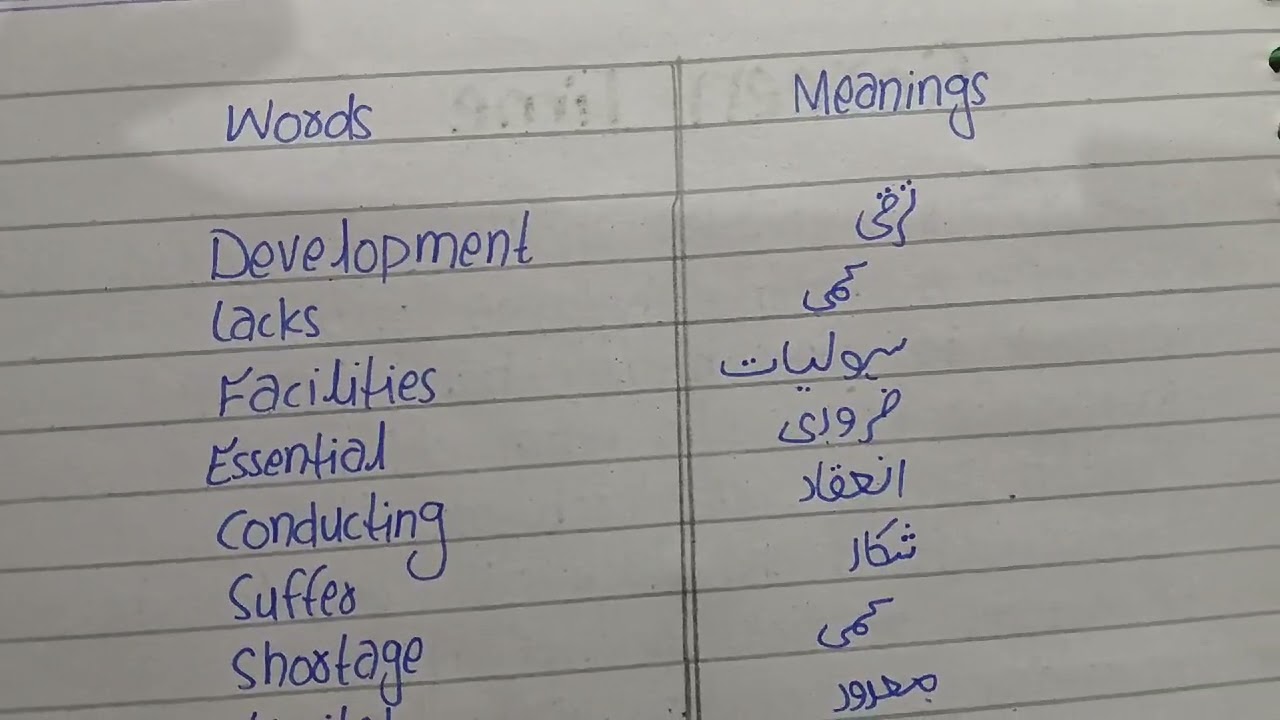 Words Meanings
Development ترقی
Lacks کمی
Facilities سہولیات
Essential ضروری
Conducting انعقاد
Suffer شکار
Shortage کمی